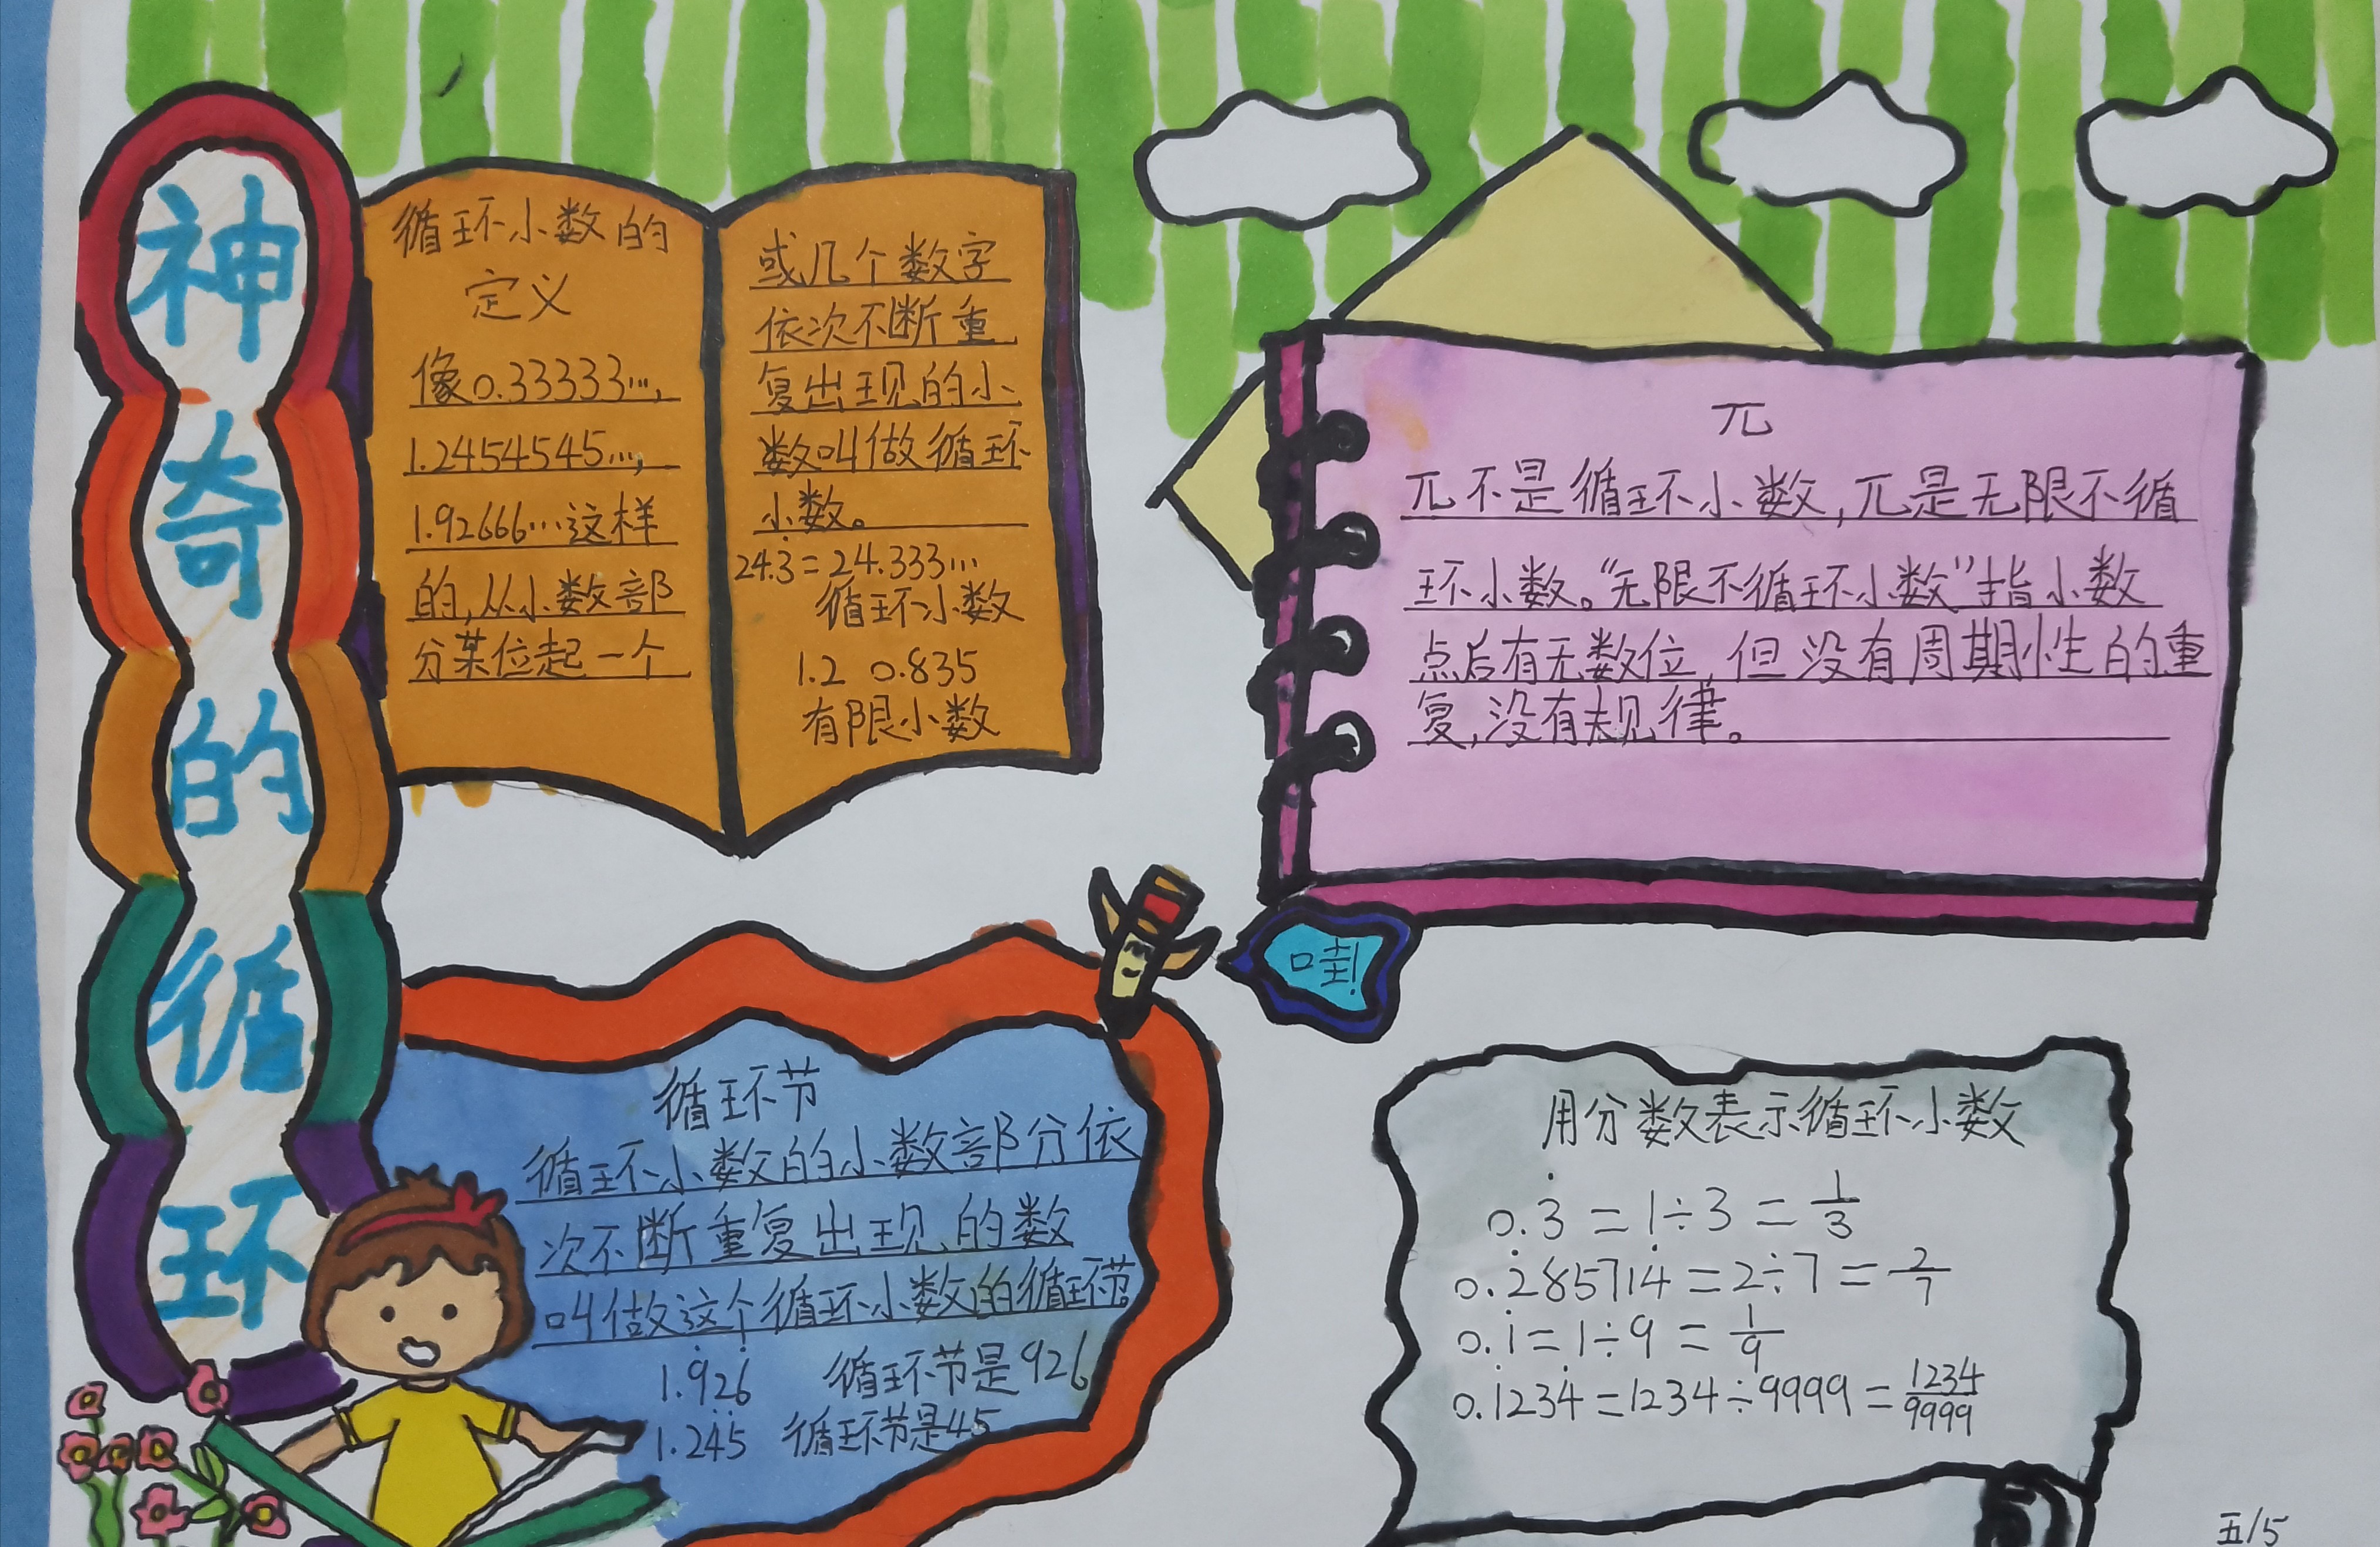 神奇的循环
循环小数的
定义
像0.33333…,
1.2454545…,
1.92666…这样
的,从小数部
分某位起一个
或几个数字
依次不断重
复出现的小
数叫做循环
小数。
24.3̇=24.333…
循环小数
1.2 0.835
有限小数
兀
兀不是循环小数,兀是无限不循
环小数。“无限不循环小数”指小数
点后有无数位,但没有周期性的重
复,没有规律。
哇!
循环节
循环小数的小数部分依
次不断重复出现的数
叫做这个循环小数的循环节。
1.9̇26̇ 循环节是926
1.24̇5̇ 循环节是45
用分数表示循环小数
0.3̇=1÷3=1/3
0.2̇85714̇=2÷7=2/7
0.1̇=1÷9=1/9
0.1̇234̇=1234÷9999=1234/9999
五/5